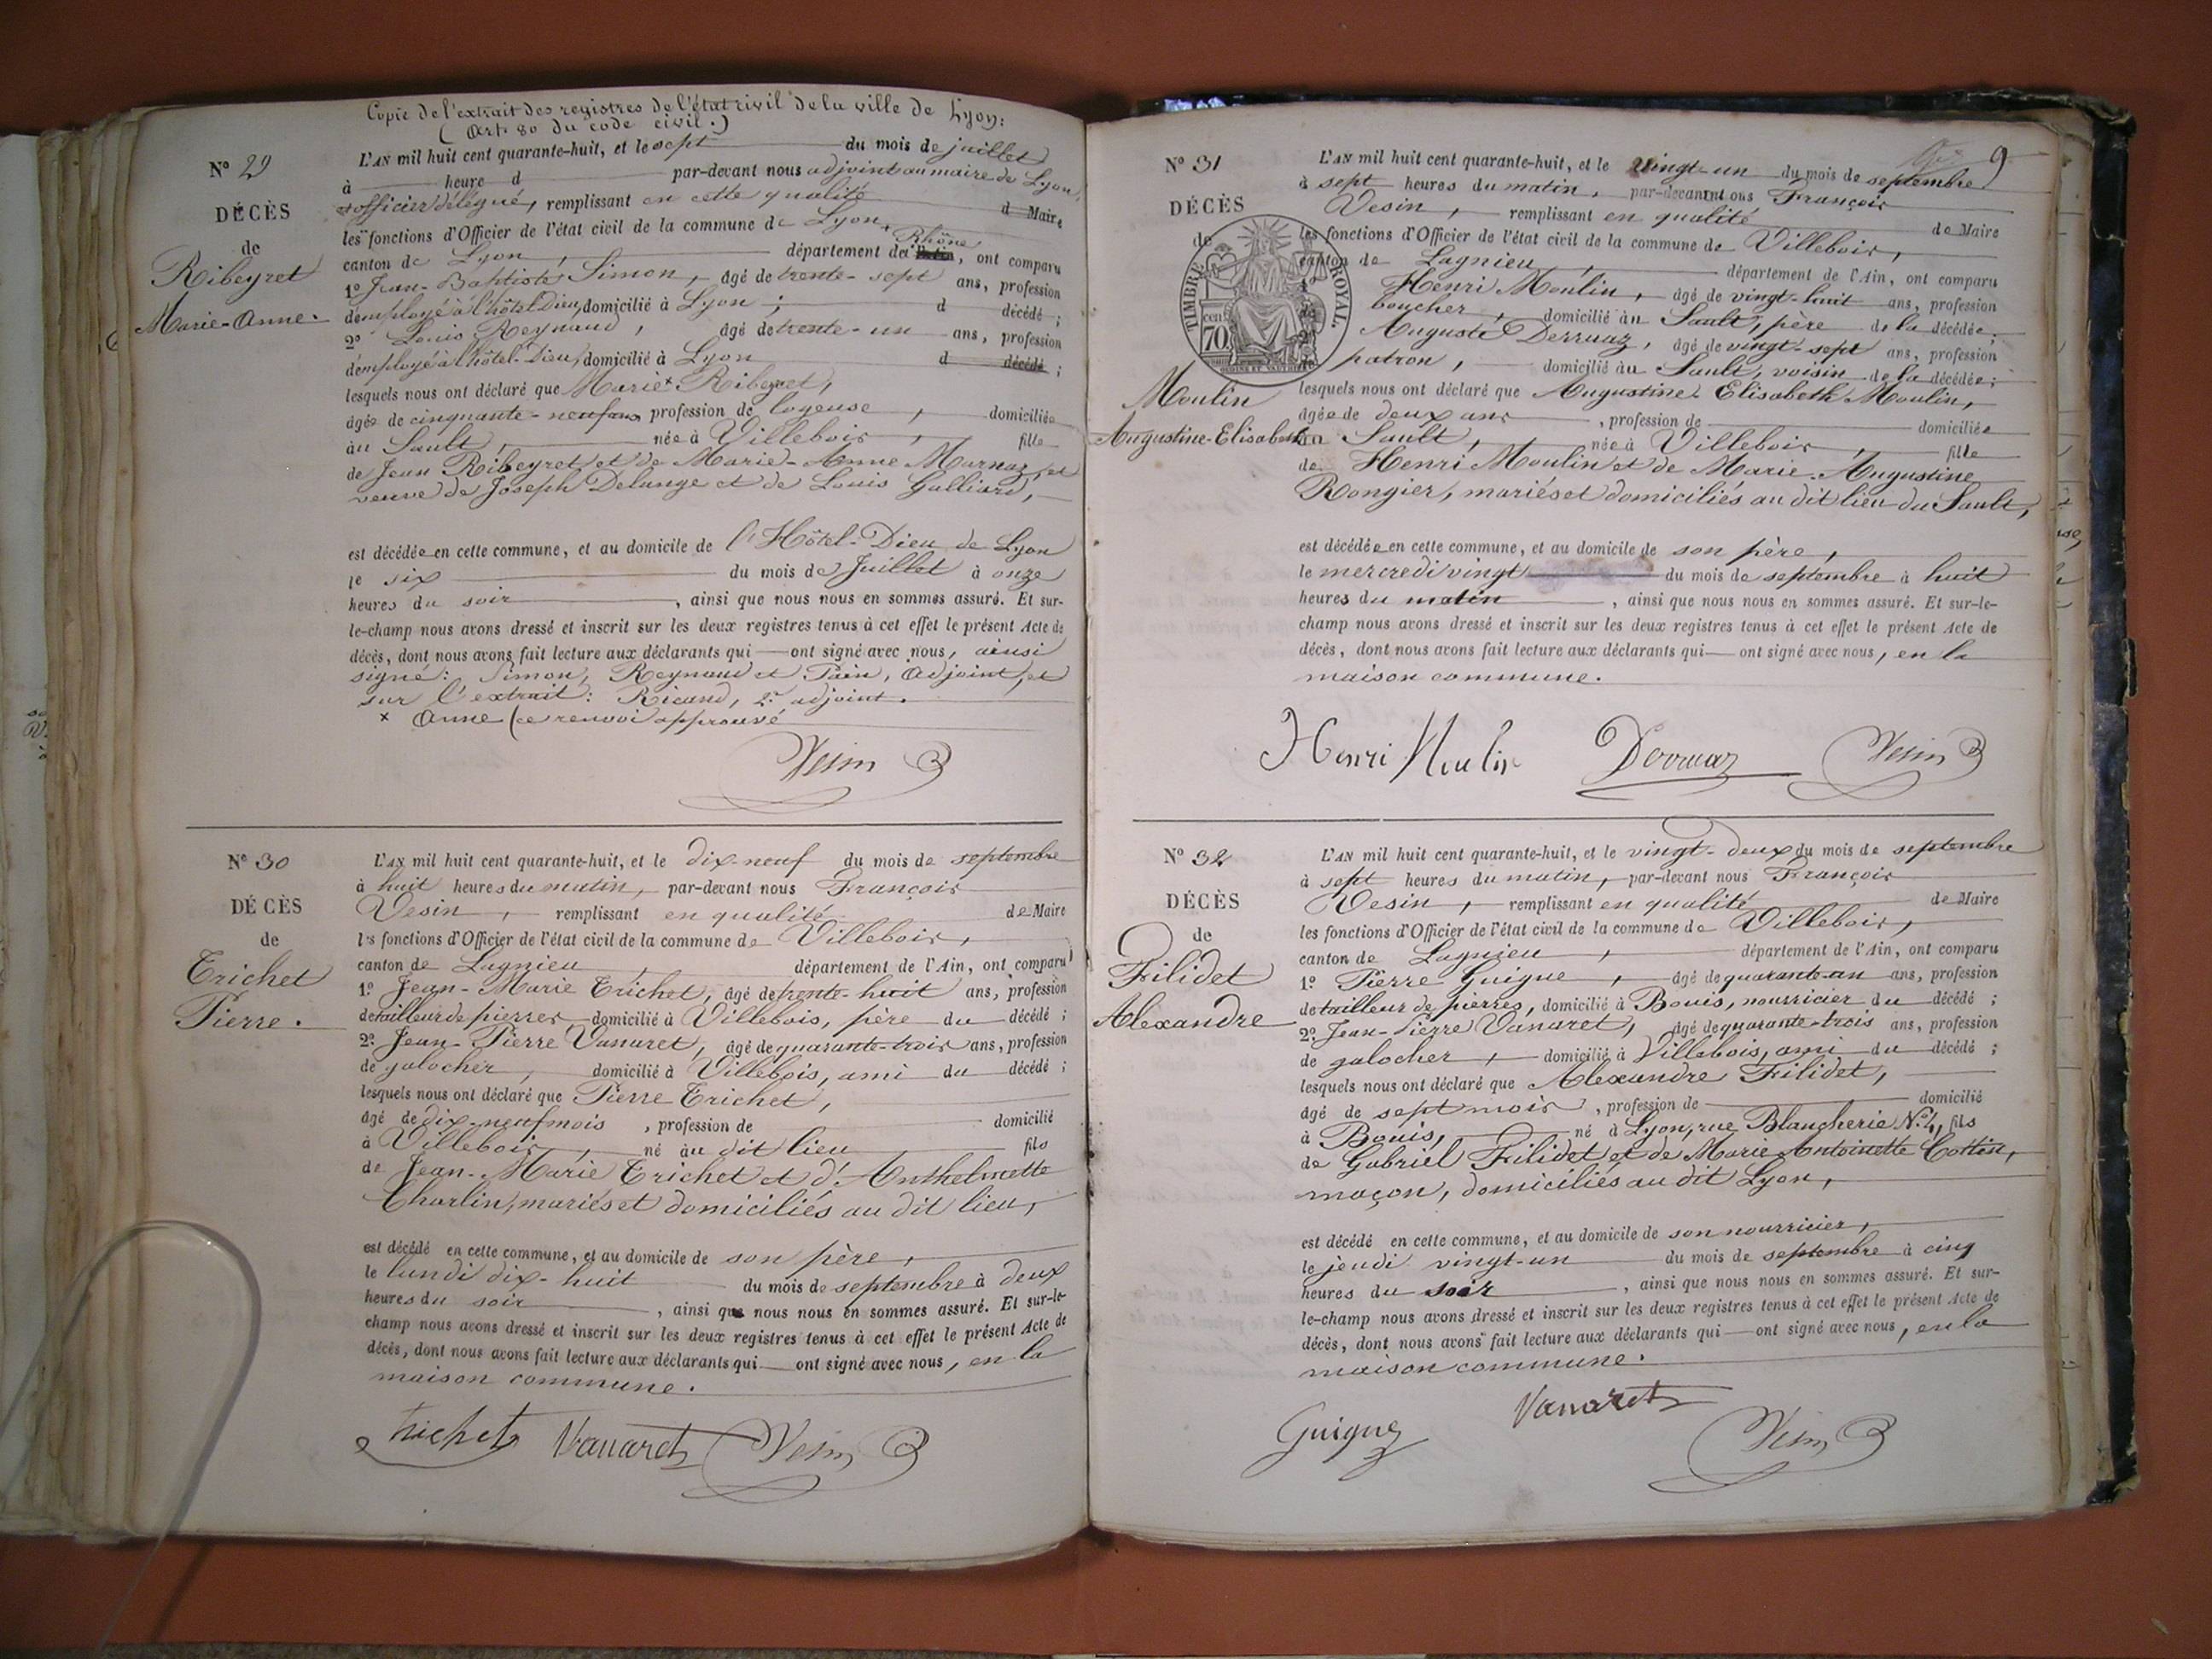 Copie de l'extrait des registres de l'état civil de la ville de Lyon:
(Art. 80 du code civil.)
N° 29
DÉCÈS
de
Ribeyret
Marie-Anne.
L'AN mil huit cent quarante-huit, et le sept du mois de juillet
à heure d par-devant nous adjoint au maire de Lyon,
officier délégué, remplissant en cette qualité d Maire
les fonctions d'Officier de l'état civil de la commune de Lyon
canton de Lyon, département du Rhône, ont comparu
1° Jean-Baptiste Simon, âgé de trente-sept ans, profession
d'employé à l'hôtel Dieu, domicilié à Lyon; d décédé;
2° Louis Reynaud, âgé de trente-un ans, profession
d'employé à l'hôtel-Dieu, domicilié à Lyon d décédé;
lesquels nous ont déclaré que Marie x Ribeyret,
âgée de cinquante-neuf ans profession de logeuse, domiciliée
au Sault, née à Villebois, fille
de Jean Ribeyret et de Marie-Anne Marnaz, et
veuve de Joseph Delange et de Louis Galliard,
est décédée en cette commune, et au domicile de l'Hôtel-Dieu de Lyon
le six du mois de Juillet à onze
heures du soir, ainsi que nous nous en sommes assuré. Et sur-
le-champ nous avons dressé et inscrit sur les deux registres tenus à cet effet le présent Acte de
décès, dont nous avons fait lecture aux déclarants qui ont signé avec nous, ainsi
signé: Simon, Reynaud et Pain, adjoint, et
sur l'extrait: Ricand, 2e adjoint.
x Anne (ce renvoi approuvé
Vesin
N° 30
DÉCÈS
de
Trichet
Pierre.
L'AN mil huit cent quarante-huit, et le dix-neuf du mois de septembre
à huit heures du matin, par-devant nous François
Vesin, remplissant en qualité de Maire
les fonctions d'Officier de l'état civil de la commune de Villebois,
canton de Lagnieu, département de l'Ain, ont comparu
1° Jean-Marie Trichet, âgé de trente-huit ans, profession
de tailleur de pierres domicilié à Villebois, père du décédé;
2° Jean-Pierre Vanaret, âgé de quarante-trois ans, profession
de galocher, domicilié à Villebois, ami du décédé;
lesquels nous ont déclaré que Pierre Trichet,
âgé de dix-neuf mois, profession de domicilié
à Villebois, né au dit lieu fils
de Jean-Marie Trichet et d'Anthelmette
Charlin, mariés et domiciliés au dit lieu,
est décédé en cette commune, et au domicile de son père,
le lundi dix-huit du mois de septembre à deux
heures du soir, ainsi que nous nous en sommes assuré. Et sur-le-
champ nous avons dressé et inscrit sur les deux registres tenus à cet effet le présent Acte de
décès, dont nous avons fait lecture aux déclarants qui ont signé avec nous, en la
maison commune.
Trichet Vanaret Vesin
9
N° 31
DÉCÈS
de
TIMBRE ROYAL.
70
Moulin
Augustine-Elisabeth
L'AN mil huit cent quarante-huit, et le vingt-un du mois de septembre
à sept heures du matin, par-devant nous François
Vesin, remplissant en qualité de Maire
les fonctions d'Officier de l'état civil de la commune de Villebois,
canton de Lagnieu, département de l'Ain, ont comparu
Henri Moulin, âgé de vingt-huit ans, profession
boucher, domicilié au Sault, père de la décédée;
Auguste Derruaz, âgé de vingt-sept ans, profession
patron, domicilié au Sault, voisin de la décédée;
lesquels nous ont déclaré que Augustine Elisabeth Moulin,
âgée de deux ans, profession de domiciliée
au Sault, née à Villebois, fille
de Henri Moulin et de Marie-Augustine
Rongier, mariés et domiciliés au dit lieu du Sault,
est décédée en cette commune, et au domicile de son père,
le mercredi vingt du mois de septembre à huit
heures du matin, ainsi que nous nous en sommes assuré. Et sur-le-
champ nous avons dressé et inscrit sur les deux registres tenus à cet effet le présent Acte de
décès, dont nous avons fait lecture aux déclarants qui ont signé avec nous, en la
maison commune.
Henri Moulin Derruaz Vesin
N° 32
DÉCÈS
de
Filidet
Alexandre
L'AN mil huit cent quarante-huit, et le vingt-deux du mois de septembre
à sept heures du matin, par-devant nous François
Vesin, remplissant en qualité de Maire
les fonctions d'Officier de l'état civil de la commune de Villebois,
canton de Lagnieu, département de l'Ain, ont comparu
1° Pierre Guigue, âgé de quarante-un ans, profession
de tailleur de pierres, domicilié à Bouis, nourricier du décédé;
2° Jean-Pierre Vanaret, âgé de quarante-trois ans, profession
de galocher, domicilié à Villebois, ami du décédé;
lesquels nous ont déclaré que Alexandre Filidet,
âgé de sept mois, profession de domicilié
à Bouis, né à Lyon, rue Blancherie N° 4, fils
de Gabriel Filidet et de Marie Antoinette Cottin,
maçon, domiciliés au dit Lyon,
est décédé en cette commune, et au domicile de son nourricier,
le jeudi vingt-un du mois de septembre à cinq
heures du soir, ainsi que nous nous en sommes assuré. Et sur-
le-champ nous avons dressé et inscrit sur les deux registres tenus à cet effet le présent Acte de
décès, dont nous avons fait lecture aux déclarants qui ont signé avec nous, en la
maison commune.
Guigue Vanaret Vesin